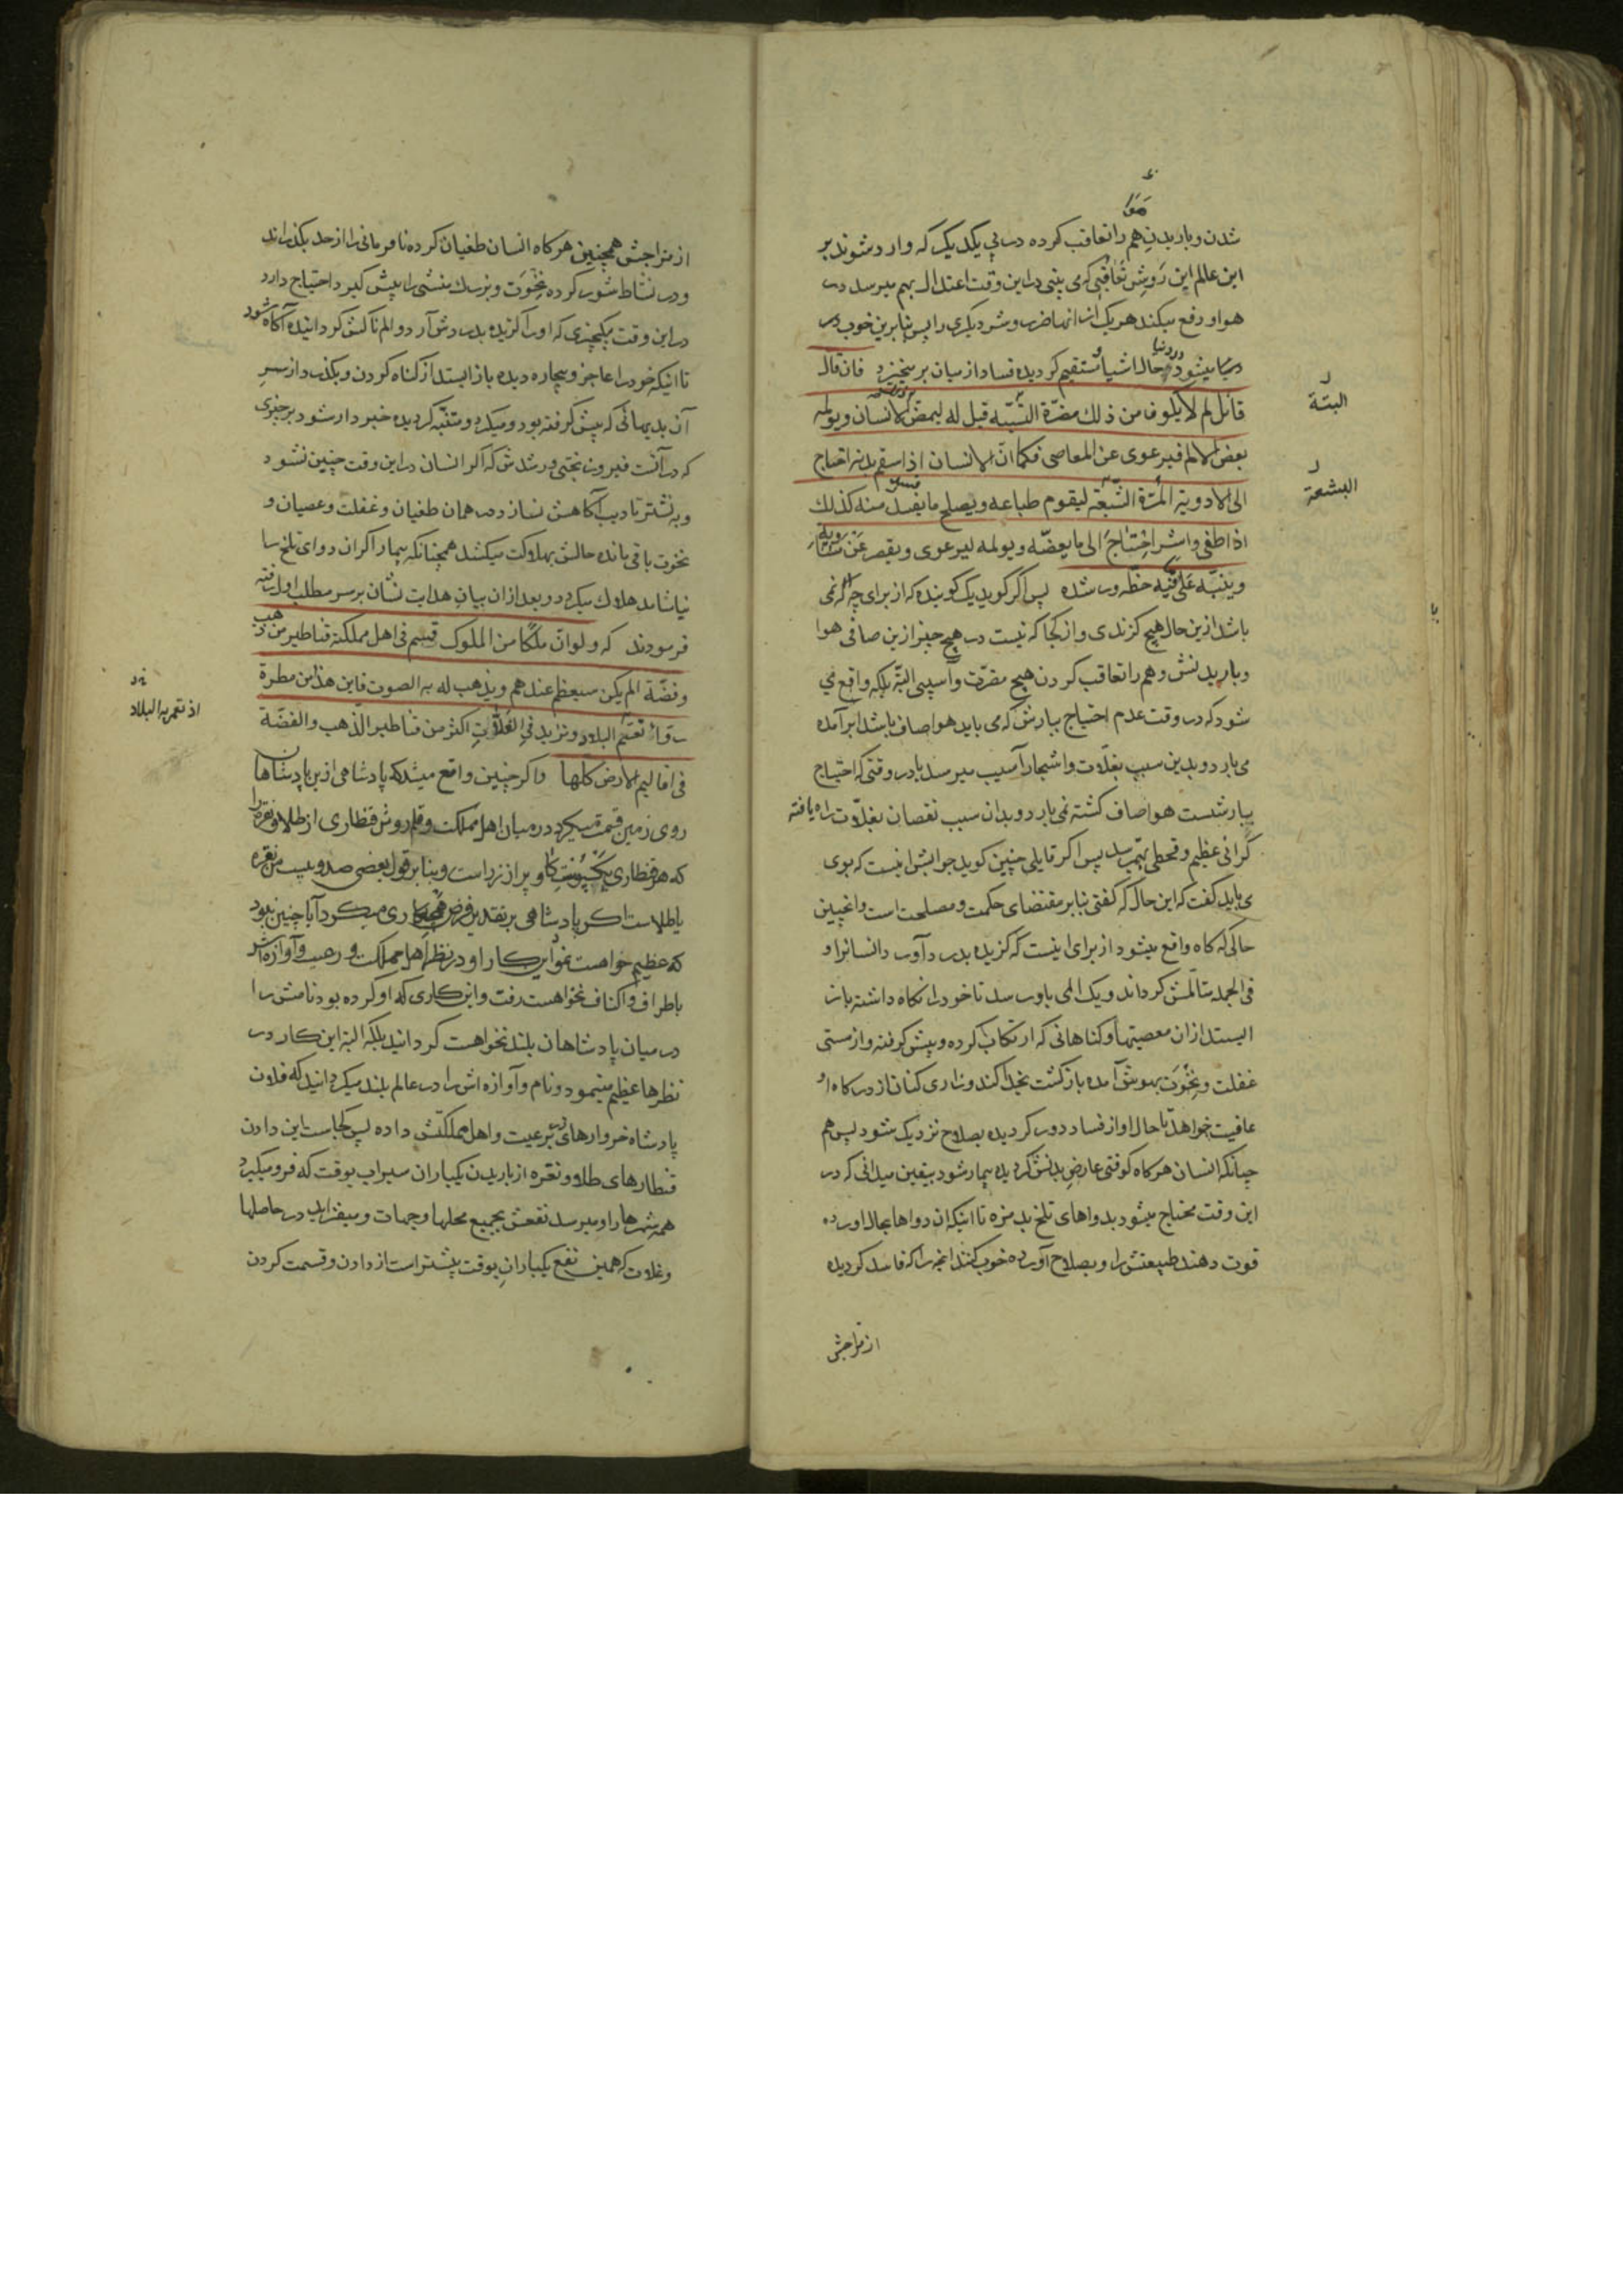 هوا
شدن و باریدن هم را تعاقب کرده در پی یکدیگر که وارد شوند بر
این عالم این روش تعاقبی که می بینی در این وقت اعتدال بهم میرسد در
هوا و دفع میکند هر یک از انها ضرر و شر دیگری را پس بنابرین خوب در
میشود و حال اشیا مستقیم کردیده فساد از میان بر میخیزد فان قال
قائل لم لا یکون من ذلك مضرّة البتّة قیل له لیمض الانسان ویولمه
بعض الالم فیرعوی عن المعاصی فکما ان الانسان اذا سقم بدنه احتاج
الی الادویة المرّة البشعة لیقوم طباعه ویصلح ما یفسد منه کذلك
اذا طغی واشر احتاج الی ما یعضّه ویولمه لیرعوی ویقصر عن مساویه
وینبّه علی ما فیه حظّه ورشده پس اکر کوید یک کوینده که از برای چه که نمی
باشد ازین حال هیچ کزندی و از کجا که نیست در هیچ چیز ازین صافی هوا
و باریدنش و هم را تعاقب کردن هیچ مضرّت و آسیبی البتّه بلکه واقع می
شود که در وقت عدم احتیاج ببارش که می باید هوا صاف باشد ابر آمده
می بارد و بدین سبب بغلّات و اشجار آسیب میرسد یا در وقتی که احتیاج
ببارشست هوا صاف کشته نمی بارد و بدان سبب نقصان بغلّات راه یافته
کرانی عظیم و قحطی بهم میرسد پس اکر قایلی چنین کوید جوابش اینست که بوی
می باید کفت که این حال که کفتی بنابر مقتضای حکمت و مصلحت است و اینچنین
حالی که کاه واقع میشود از برای اینست که کزیده بدرد آورد انسانرا و
فی الجمله متالّمش کرداند و یک المی باو رسد تا خود را نکاه داشته باز
ایستد از ان معصیتها و کناهانی که ارتکاب کرده و پیش کرفته و از مستی
غفلت و نخوت بهوش آمده بازکشت بخدا کند و زاری کنان از درکاه او
عافیت خواهد تا حال او از فساد دور کردیده بصلاح نزدیک شود پس هم
چنانکه انسان هرکاه کوفتی عارض بدنش کردیده بیمار شود بیقین میدانی که در
این وقت محتاج میشود بدواهای تلخ بدمزه تا اینکه ان دواها بحال آورده
قوت دهند طبیعتش را و بصلاح آورده خوب کنند انچه را که فاسد کردیده
از مزاجش
البتة
البشعة
از مزاجش همچنین هرکاه انسان طغیان کرده نافرمانی را از حد بکذراند
و در نشاط شور کرده نخوت و بزرك منشی را پیش کیرد احتیاج دارد
در این وقت بیکچیزی که اورا کزیده بدردش آرد و المناکش کردانیده آکاه شود
تا اینکه خود را عاجز و بیچاره دیده باز ایستد از کناه کردن و بکذرد از سر
آن بدیهائی که پیش کرفته بود و میکرد و متنبّه کردیده خبردار شود بر چیزی
که در آنست فیروز بختی و رشدش که اکر انسان در این وقت چنین نشود
و به نشتر تادیب آکاهش نسازد در همان طغیان و غفلت و عصیان و
نخوت باقی مانده حالش بهلاکت میکشد همچنانکه بیمار اکر ان دوای تلخ را
نیاشامد هلاك میکردد و بعد از ان بیان هدایت نشان بر سر مطلب اول رفته
فرمودند که ولو ان ملکا من الملوك قسم فی اهل مملکته قناطیر من ذهب
وفضّة الم یکن سیعظم عندهم ویذهب له به الصوت فاین هذا من مطرة
رواء تعمّ البلاد وتزید فی الغلّات اکثر من قناطیر الذهب والفضّة
فی اقالیم الارض کلها و اکر چنین واقع میشد که پادشاهی از پادشاهان
روی زمین قسمت میکرد در میان اهل مملکت و قلمروش قنطاری از طلا و نقره را
که هر قنطاری یک پوست کاو پر از زر است و بنابر قول بعضی صد و بیست من نقره
یا طلاست اکر پادشاهی بر تقدیر فرض چنین کاری میکرد آیا چنین نبود
که عظیم خواهست نمود این کار او در نظر اهل مملکت و رعیت و آوازه اش
باطراف و اکناف نخواهست رفت و این کاری که او کرده بود نامش را
در میان پادشاهان بلند نخواهست کردانید بلکه البته این کار در
نظرها عظیم مینمود و نام و آوازه اش را در عالم بلند میکردانید که فلان
پادشاه خروارهای زر برعیت و اهل مملکتش داده پس کجاست این دادن
قنطارهای طلا و نقره از باریدن یکباران سیراب بوقت که فرو میکیرد
همه شهرها را و میرسد نفعش بجمیع محلها و جهات و میفزاید در حاصلها
و غلات که همین نفع یکباران بوقت بیشتر است از دادن و قسمت کردن
اذ تعمّ به البلاد